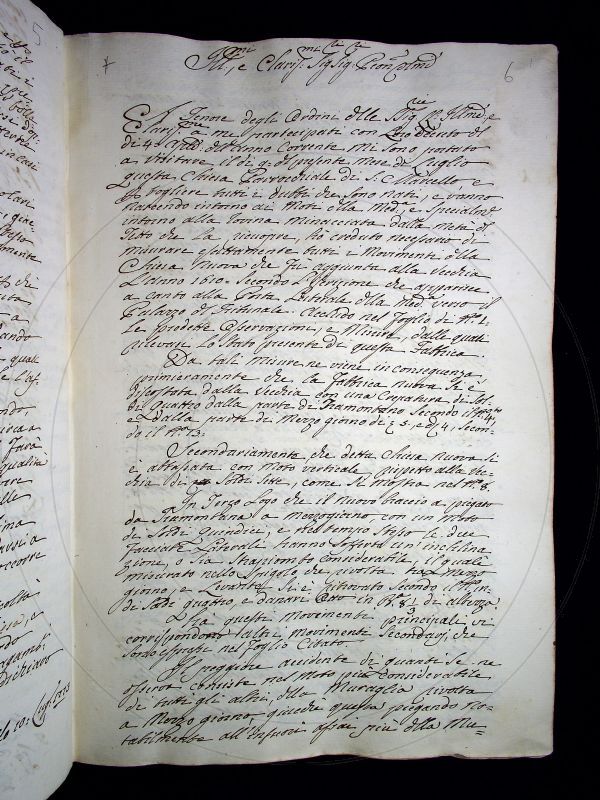 6
Ill.mi, e Claris.mi Sig.ri Sig.ri Pron Colmi
A Tenore degli Ordini delle Sig.rie VV. Illme, e
Clarisme a me partecipati con Decreto del
di 4 del'anno Corrente mi sono portato
a Visitare il di 9 del presente Mese di Luglio
questa Chiesa Parrocchiale di S. Marcello, e
togliere tutti i dubbi che sono nati, e vanno
nascendo intorno ai Moti della Med.a, e specialmte
intorno alla rovina minacciata dalla metà del
Tetto che la ricuopre, hò creduto necessario di
misurare esattamente tutti i Movimenti della
Chiesa Nuova che fù aggiunta alla Vecchia
l'anno 1610. secondo l'Iscrizione che apparisce
a canto alla Porta Laterale della med.a verso il
Palazzo del Tribunale. Accludo nel Foglio di N.o 1.
le predette Osservazioni, e Misure, dalle quali
rilevasi lo stato presente di questa Fabbrica.
Da tali misure ne viene in conseguenza
primieramente che la Fabbrica nuova si è
discostata dalla Vecchia con una Crepatura di Sol-
di quattro dalla parte di Tramontano secondo il N.o 4,
e dalla parte di Mezzo giorno di 3. e d. 4, secon-
do il N.o 13.
Secondariamente che detta Chiesa nuova si
è abbassata con moto verticale rispetto alla Vec-
chia di Soldi Sette, come si mostra nel N.o 8.
In Terzo Logo che il nuovo braccio à piegato
da Tramontana a mezzogiorno, con un moto
di Soldi Quindici, e nel tempo stesso le due
facciate Laterali hanno sofferta un'inclina
zione, o sia strapiombo considerabile, il quale
misurato nello Spigolo che rivolta tra Mezzo
giorno, e Levante si è ritrovato secondo il N.o
di Soldi quattro, e danari Otto in B.a 8 1/2 di altezza.
A questi movimenti principali vi
corrispondono i altri movimenti Secondarj che
sono espressi nel foglio Citato.
Il maggiore accidente di quanti se ne
osserva consiste nel Moto più considerabile
di tutti gli altri, della Muraglia rivolta
a Mezzo giorno, giacche questa piegando no-
tabilmente all'infuori assai più della Mu-